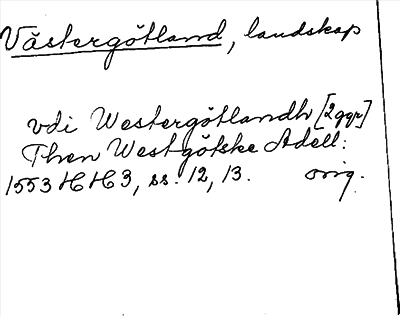 Västergötland, landskap
vdi Westergötlandh [2 ggr]
Then Westgötske Adell:
1553 HH3, ss. 12, 13. orig.